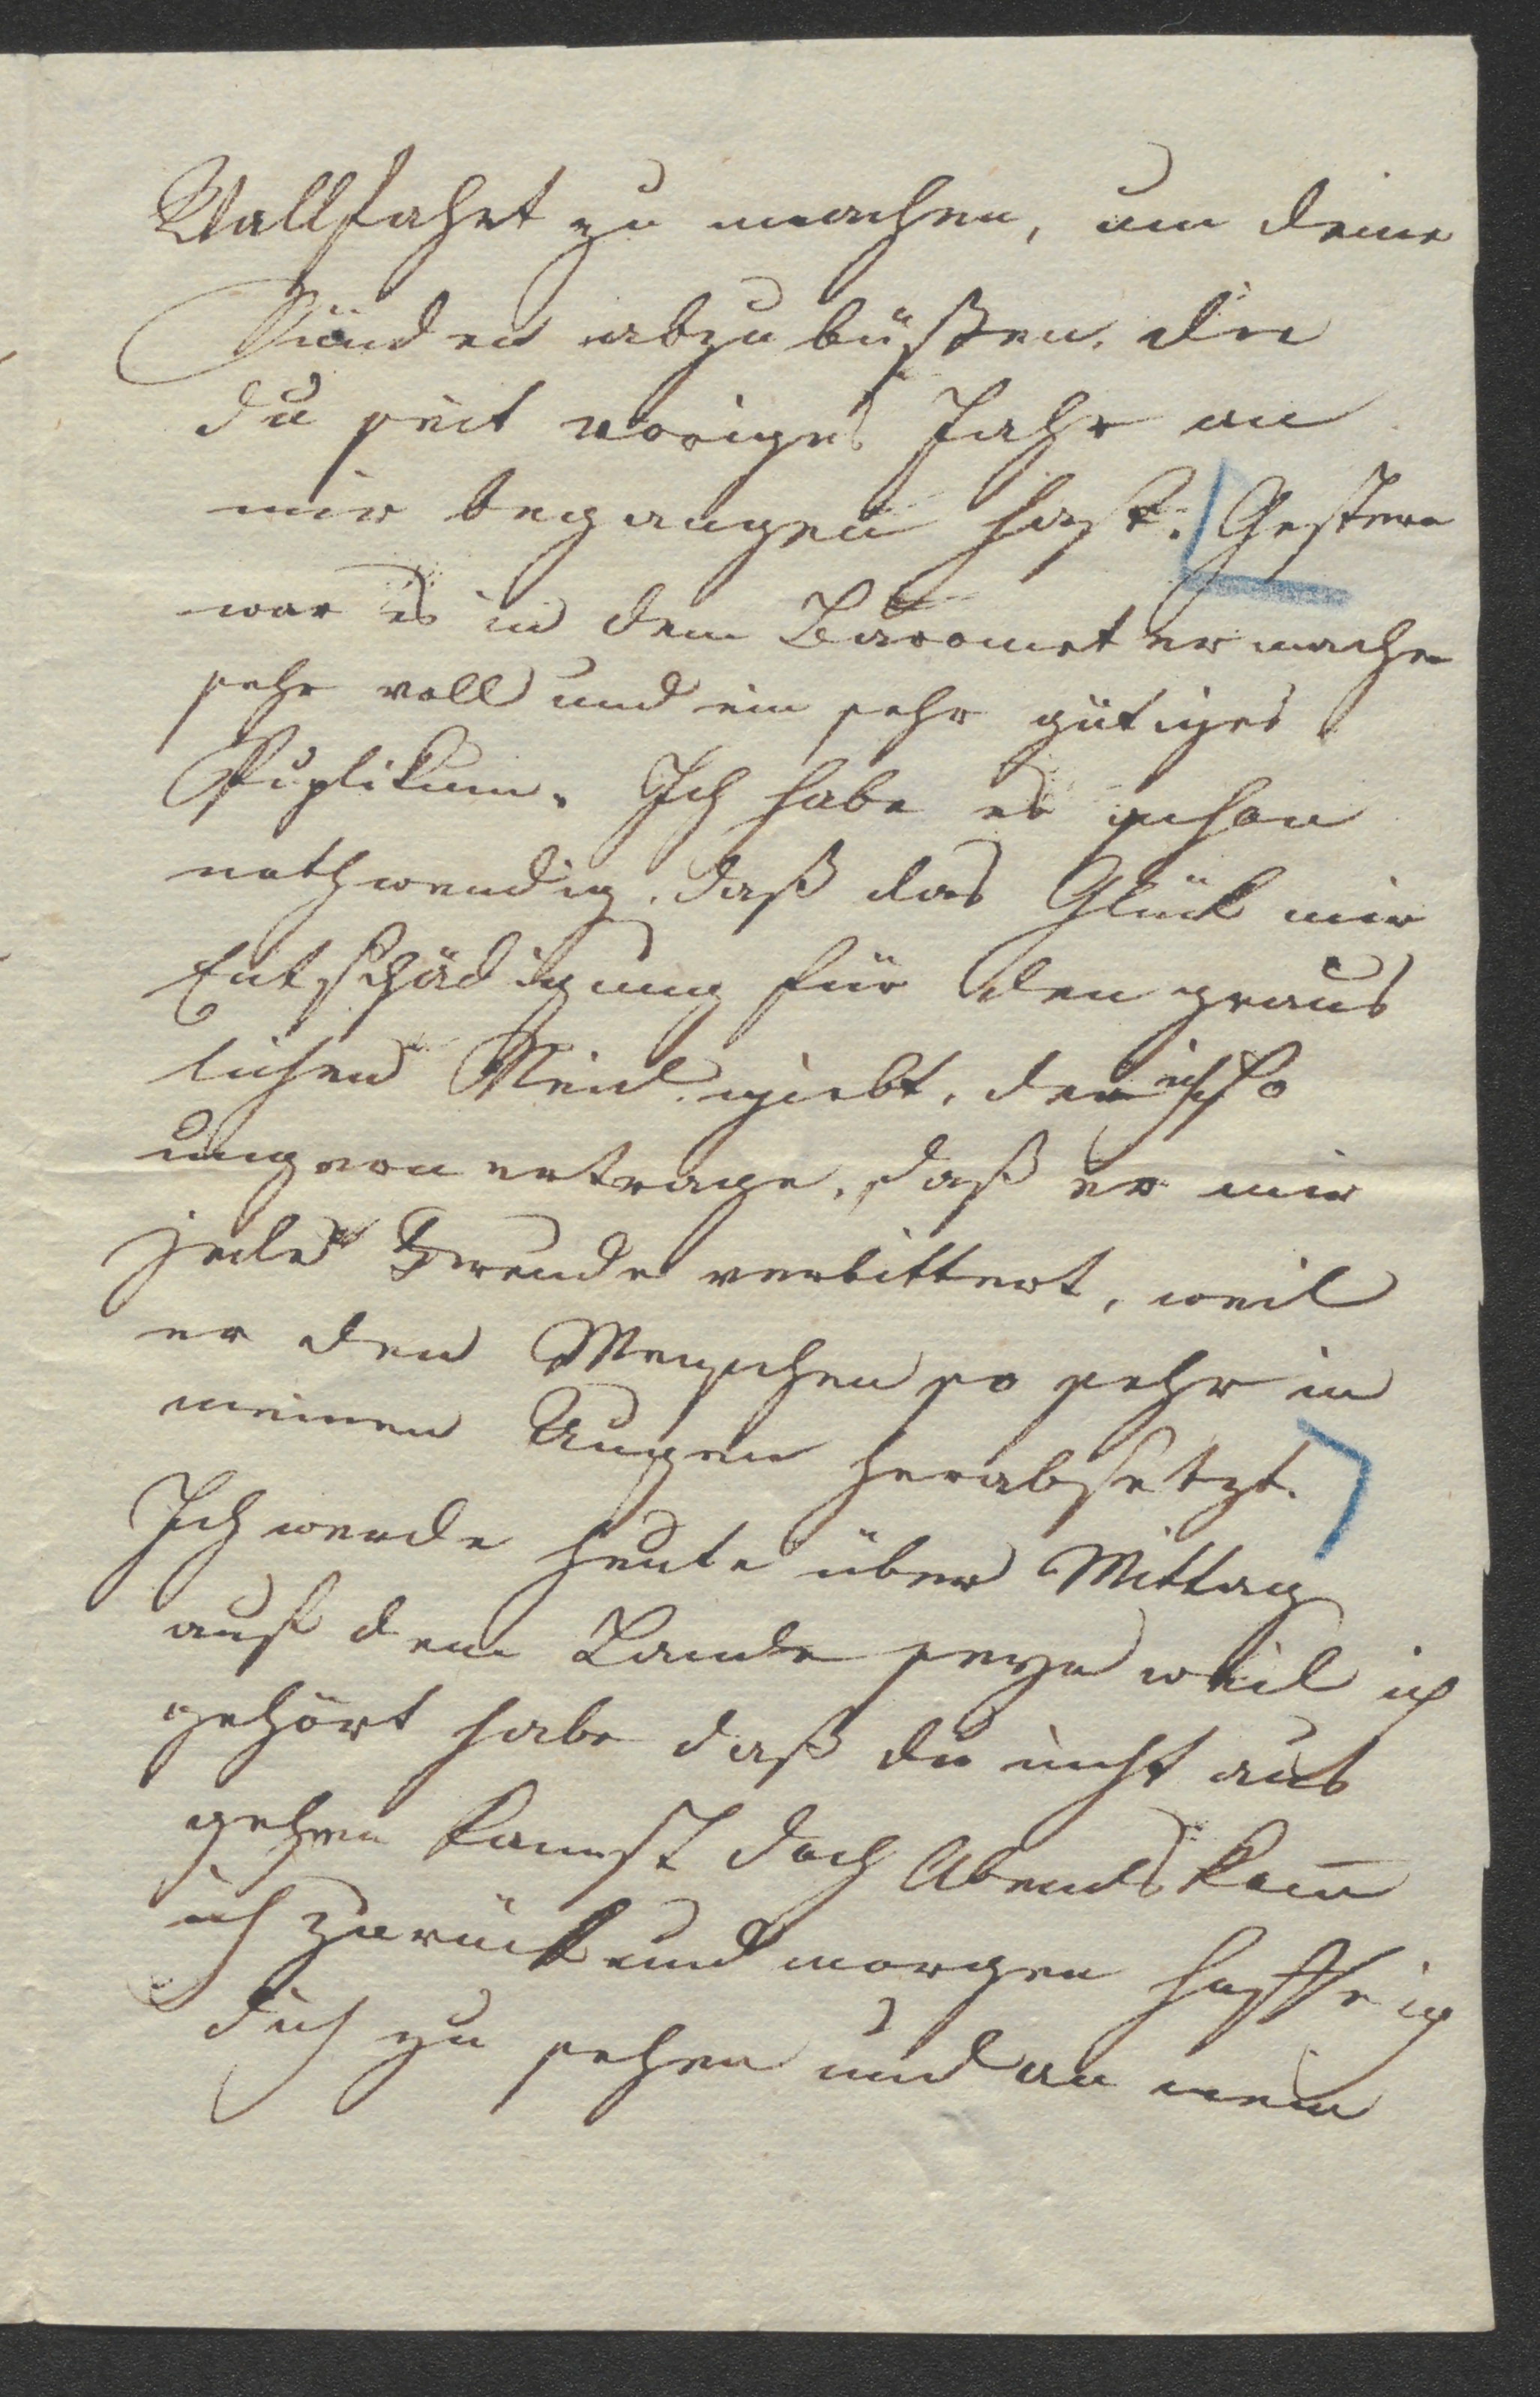 Wallfahrt zu machen, um deine
Sünden abzubüßen, die
du seit voriges Jahr an
mir begangen hast. Gestern
war es in dem Barometermacher
sehr voll und ein sehr gütiges
Puplikum. Ich habe es schon
nothwendig, daß das Glück mir
Entschädigung für den graus
lichen Neid giebt, den ich so
ungern ertrage, daß er mir
jede Freude verbittert, weil
er den Menschen so sehr in
meinen Augen herabsetzt.
Ich werde heute über Mittag
auf dem Lande seyn weil ich
gehört habe daß du nicht aus
gehen kannst doch Abends kom̄
ich zurück und morgen hoffe ich
dich zu sehen und an mein